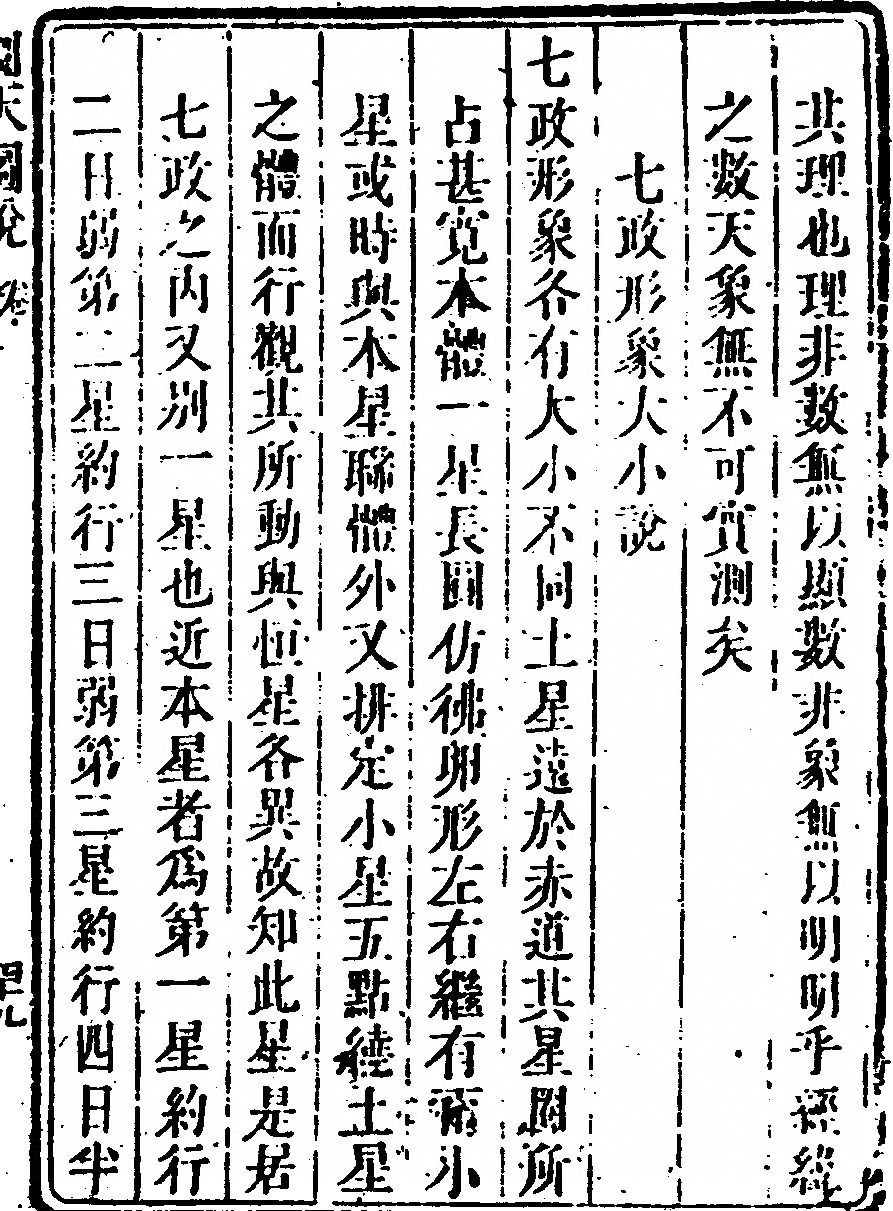 其理也理非數無以顯數非象無以明明乎經緯
之數天象無不可實測矣
七政形象大小說
七政形象各有大小不同土星遠於赤道其星圈所
占甚寬本體一星長圓仿彿卵形左右繼有兩小
星或時與本星聯體外又排定小星五點繞土星
之體而行觀其所動與恒星各異故知此星是居
七政之內又別一星也近本星者爲第一星約行
二日弱第二星約行三日弱第三星約行四日半
天圖說
四九